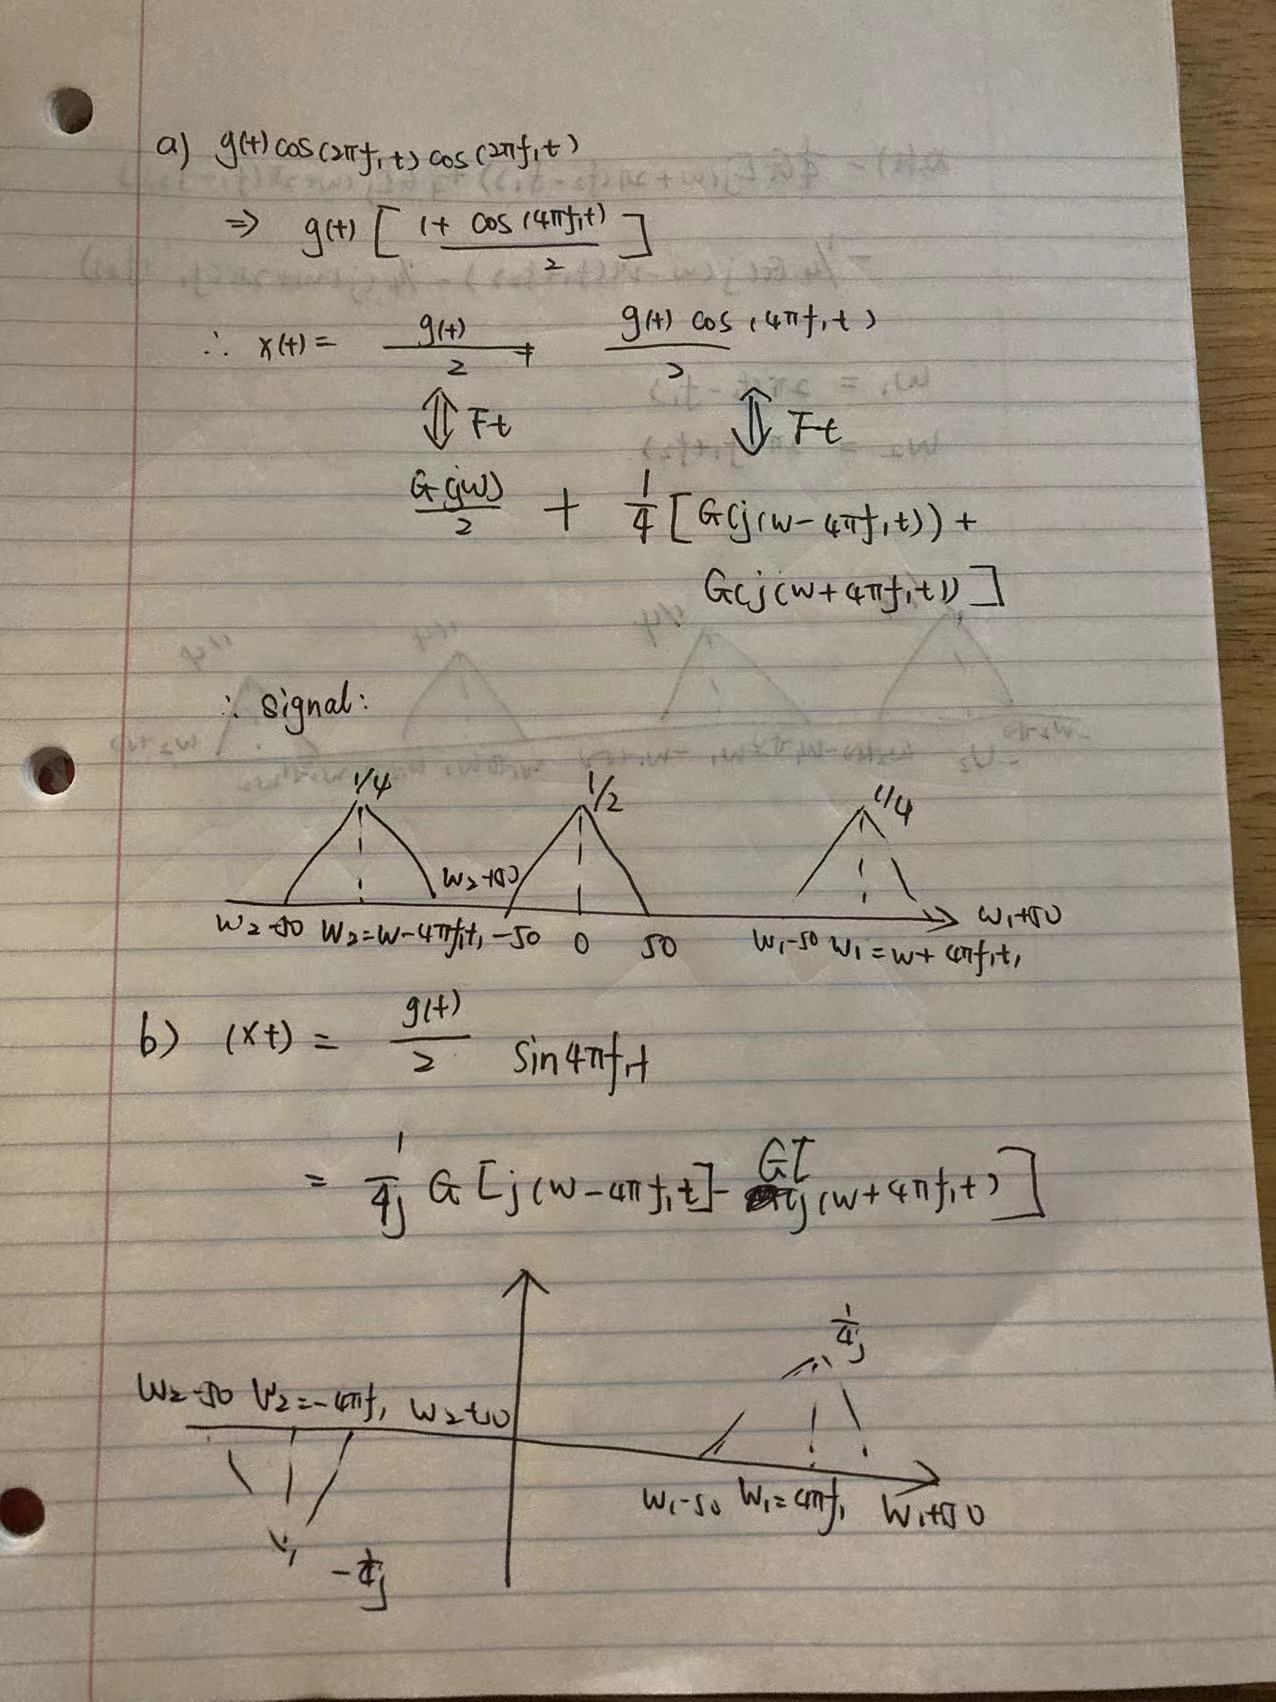 a) g(t) cos(2πf₁t) cos(2πf₁t)
⇒ g(t) [ (1 + cos(4πf₁t)) / 2 ]
∴ x(t) = g(t)/2 + g(t) cos(4πf₁t) / 2
⇕ Ft ⇕ Ft
G(jw)/2 + 1/4 [G(j(w-4πf₁t)) +
G(j(w+4πf₁t))]
∴ signal:
1/4 1/2 1/4
w₂+50
w₂-50 w₂=w-4πf₁t, -50 0 50 w₁-50 w₁=w+4πf₁t, w₁+50
b) (xt) = g(t)/2 sin4πf₁t
= 1/4j G[j(w-4πf₁t] - G[j(w+4πf₁t)]
1/4j
w₂-50 w₂=-4πf₁ w₂+50
w₁-50 w₁=4πf₁ w₁+50
-1/4j